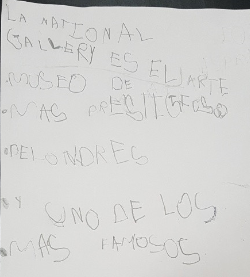 LA NATIONAL
GALLERY ES EL ARTE
MUSEO DE
MAS PRESTIGIOSO
DELONDRES
Y UNO DE LOS
MAS FAMOSOS